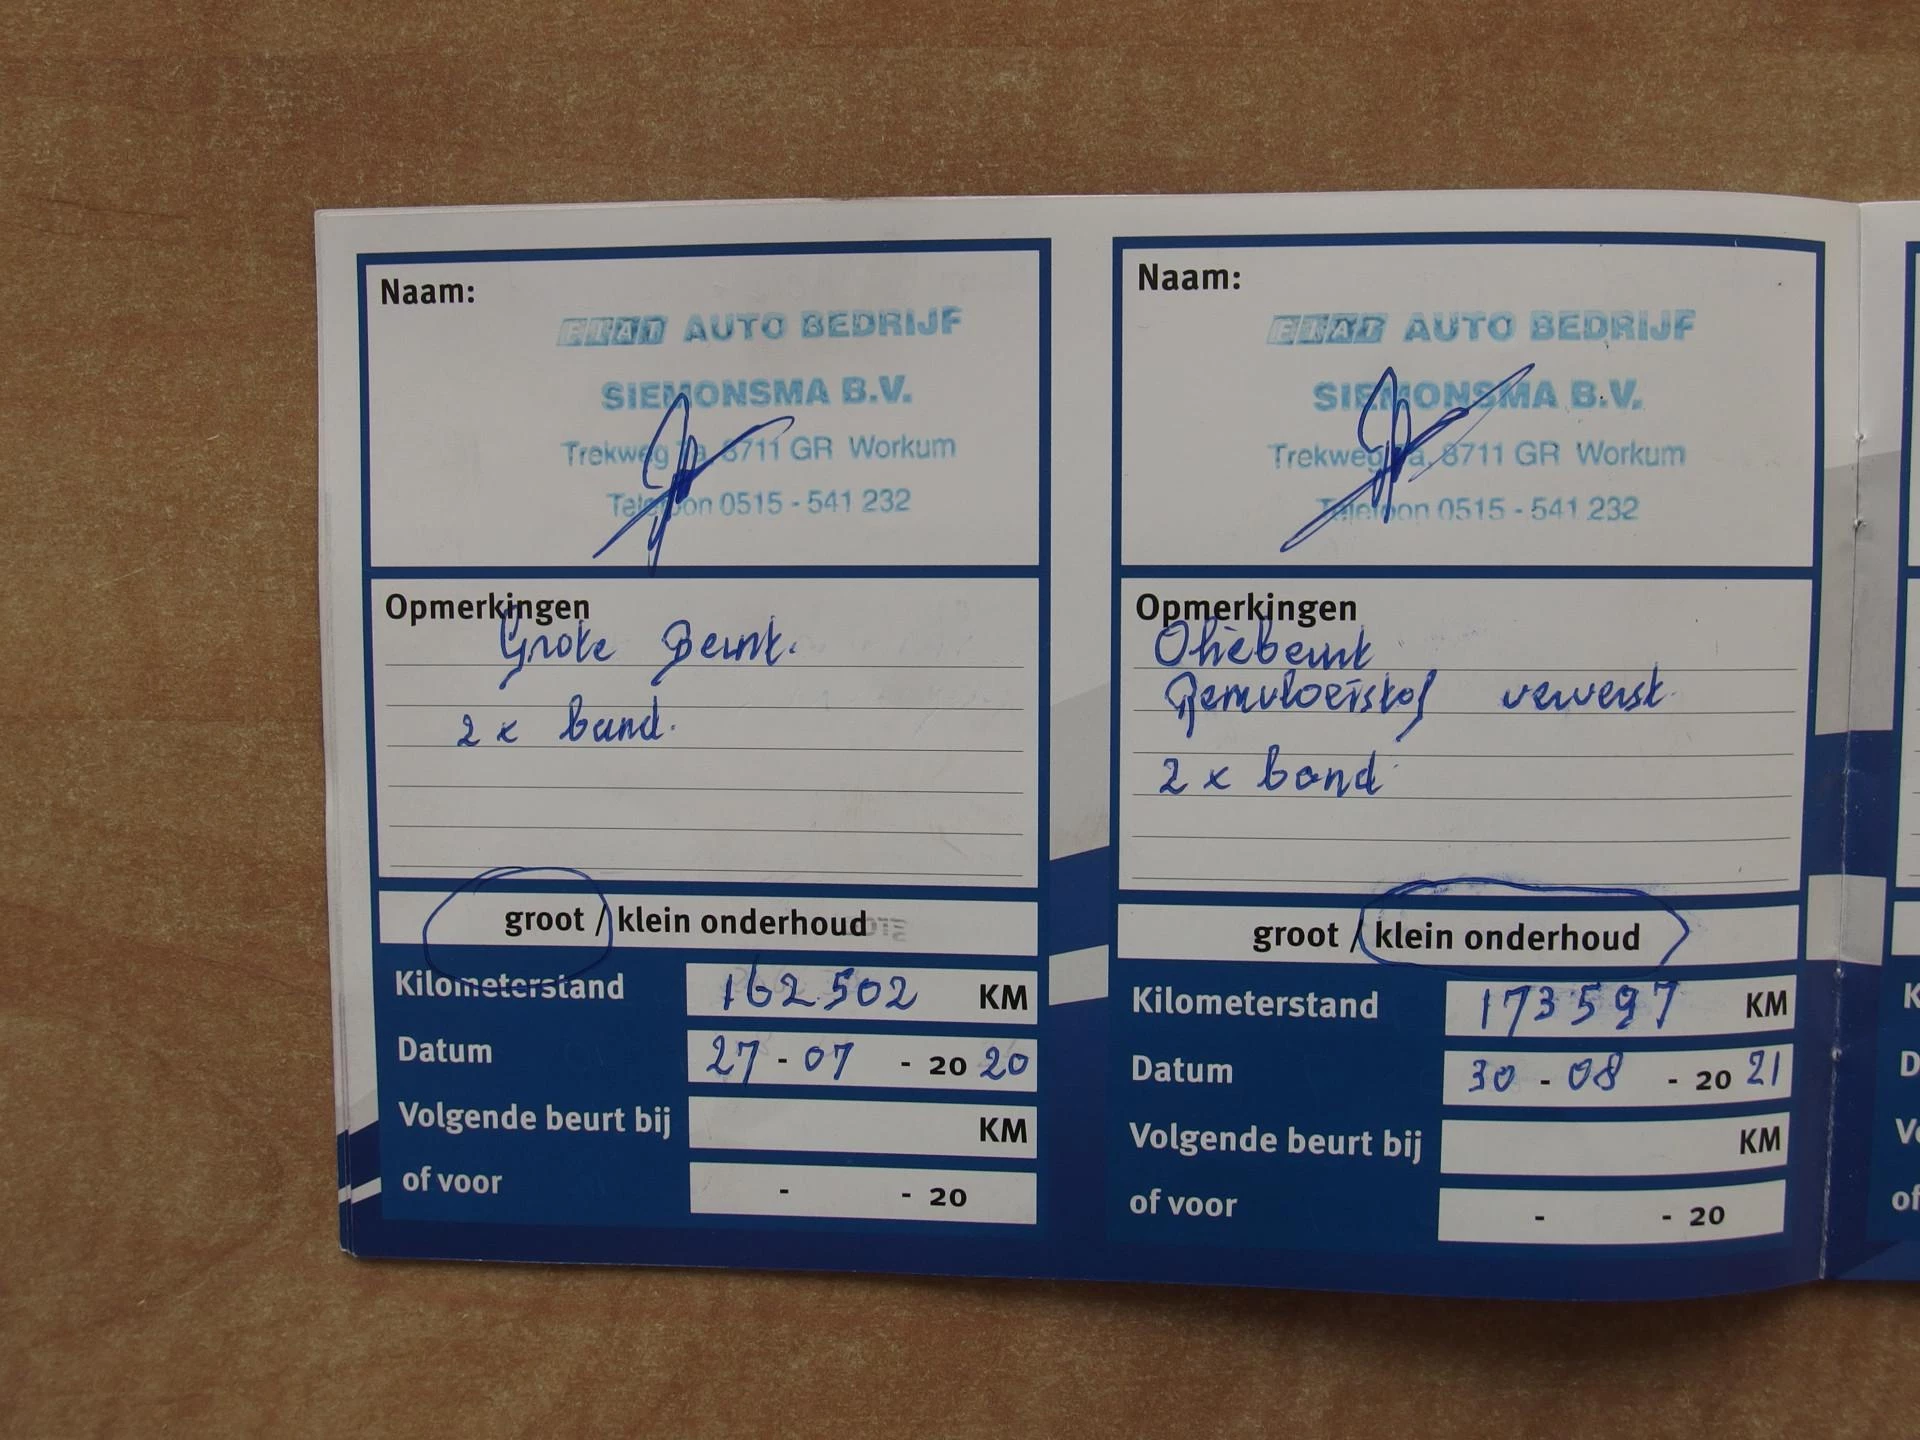 Naam:
FIAT AUTO BEDRIJF
SIEMONSMA B.V.
Trekweg 7a, 8711 GR Workum
Telefoon 0515 - 541 232
Opmerkingen
Grote Beurt.
2 x band.
groot / klein onderhoud
Kilometerstand 162.502 KM
Datum 27 - 07 - 20 20
Volgende beurt bij KM
of voor - - 20
Naam:
FIAT AUTO BEDRIJF
SIEMONSMA B.V.
Trekweg 7a, 8711 GR Workum
Telefoon 0515 - 541 232
Opmerkingen
Oliebeurt
Remvloeistof ververst
2 x band
groot / klein onderhoud
Kilometerstand 173597 KM
Datum 30 - 08 - 20 21
Volgende beurt bij KM
of voor - - 20